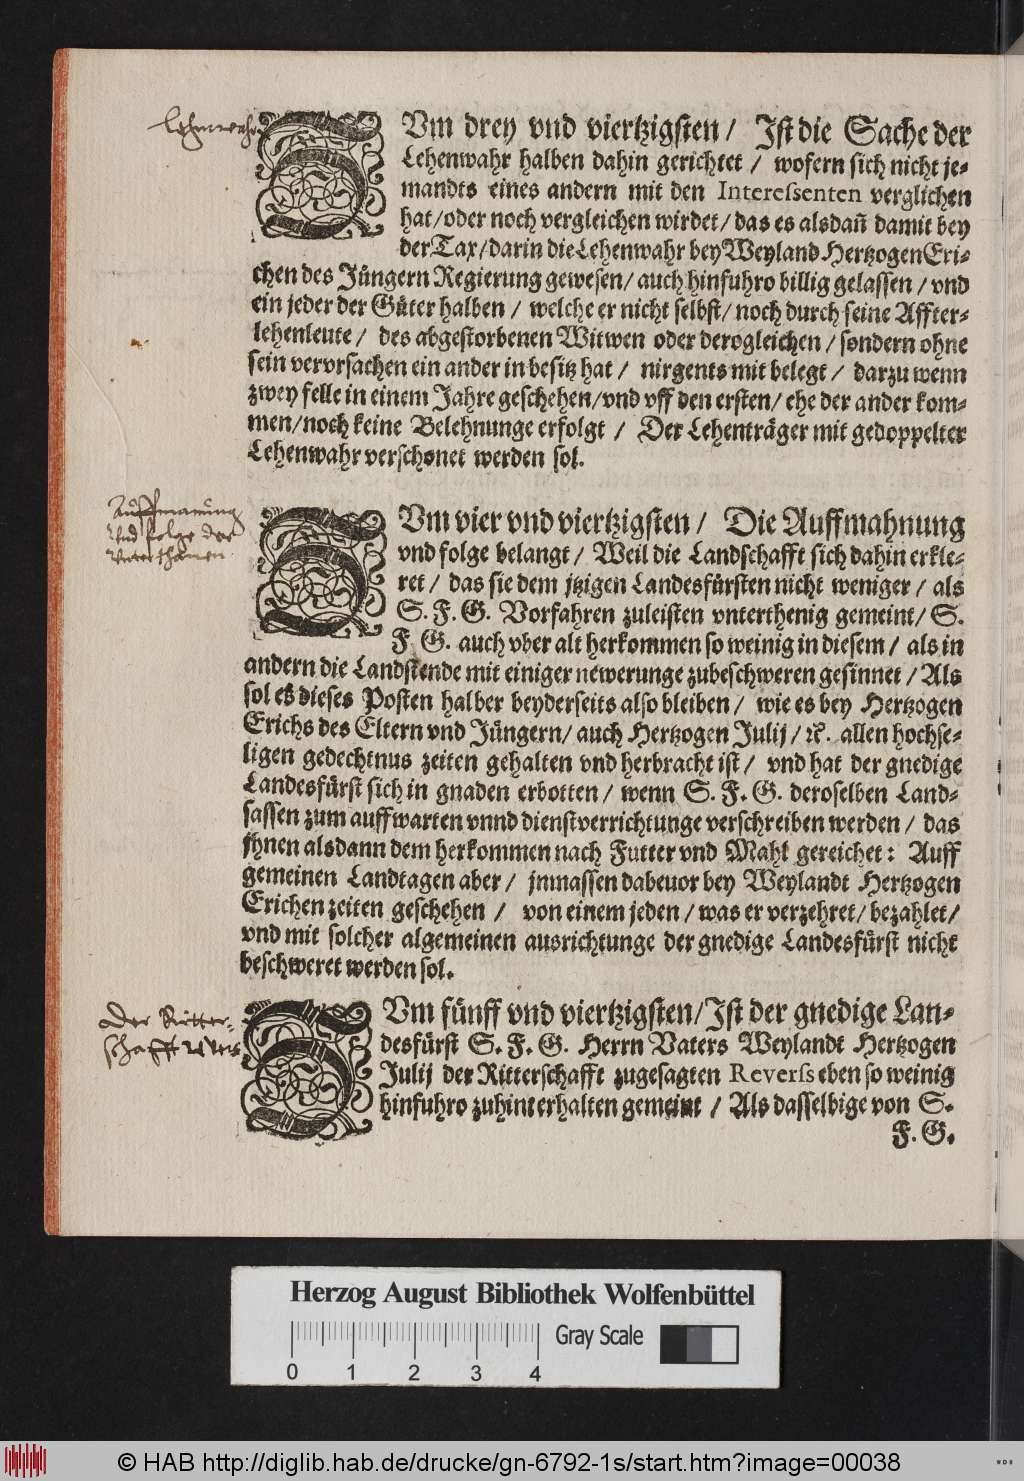 Lehnwahr
ZVm drey vnd viertzigsten / Ist die Sache der
Lehenwahr halben dahin gerichtet / wofern sich nicht je-
mandts eines andern mit den Interessenten verglichen
hat/oder noch vergleichen wirdet/das es alsdañ damit bey
der Tax/darin die Lehenwahr bey Weyland Hertzogen Eri-
chen des Jüngern Regierung gewesen/auch hinfuhro billig gelassen/vnd
ein jeder der Güter halben / welche er nicht selbst/noch durch seine Affter-
lehenleute / des abgestorbenen Witwen oder derogleichen / sondern ohne
sein vervrsachen ein ander in besitz hat / nirgents mit belegt / darzu wenn
zwey felle in einem Jahre geschehen/vnd vff den ersten/ehe der ander kom-
men/noch keine Belehnunge erfolgt / Der Lehenträger mit gedoppelter
Lehenwahr verschonet werden sol.
Auffmanung
Vnd folge der
Vnterthanen
ZVm vier vnd viertzigsten / Die Auffmahnung
vnd folge belangt / Weil die Landschafft sich dahin erkle-
ret / das sie dem jtzigen Landesfürsten nicht weniger / als
S. F. G. Vorfahren zuleisten vnterthenig gemeint/ S.
F. G. auch vber alt herkommen so weinig in diesem / als in
andern die Landstende mit einiger newerunge zubeschweren gesinnet / Als
sol es dieses Posten halber beyderseits also bleiben / wie es bey Hertzogen
Erichs des Eltern vnd Jüngern/auch Hertzogen Julij / ꝛc. allen hochse-
ligen gedechtnus zeiten gehalten vnd herbracht ist / vnd hat der gnedige
Landesfürst sich in gnaden erbotten / wenn S. F. G. deroselben Land-
sassen zum auffwarten vnnd dienstverrichtunge verschreiben werden / das
jhnen alsdann dem herkommen nach Futter vnd Mahl gereichet: Auff
gemeinen Landtagen aber / jnmassen dabeuor bey Weylandt Hertzogen
Erichen zeiten geschehen / von einem jeden / was er verzehret/bezahlet/
vnd mit solcher algemeinen ausrichtunge der gnedige Landesfürst nicht
beschweret werden sol.
Der Ritter-
schafft revers
ZVm fünff vnd viertzigsten/Ist der gnedige Lan-
desfürst S. F. G. Herrn Vaters Weylandt Hertzogen
Julij der Ritterschafft zugesagten Reverss eben so weinig
hinfuhro zuhinterhalten gemeint / Als dasselbige von S.
F. G.
Herzog August Bibliothek Wolfenbüttel
Gray Scale
0 1 2 3 4
© HAB http://diglib.hab.de/drucke/gn-6792-1s/start.htm?image=00038